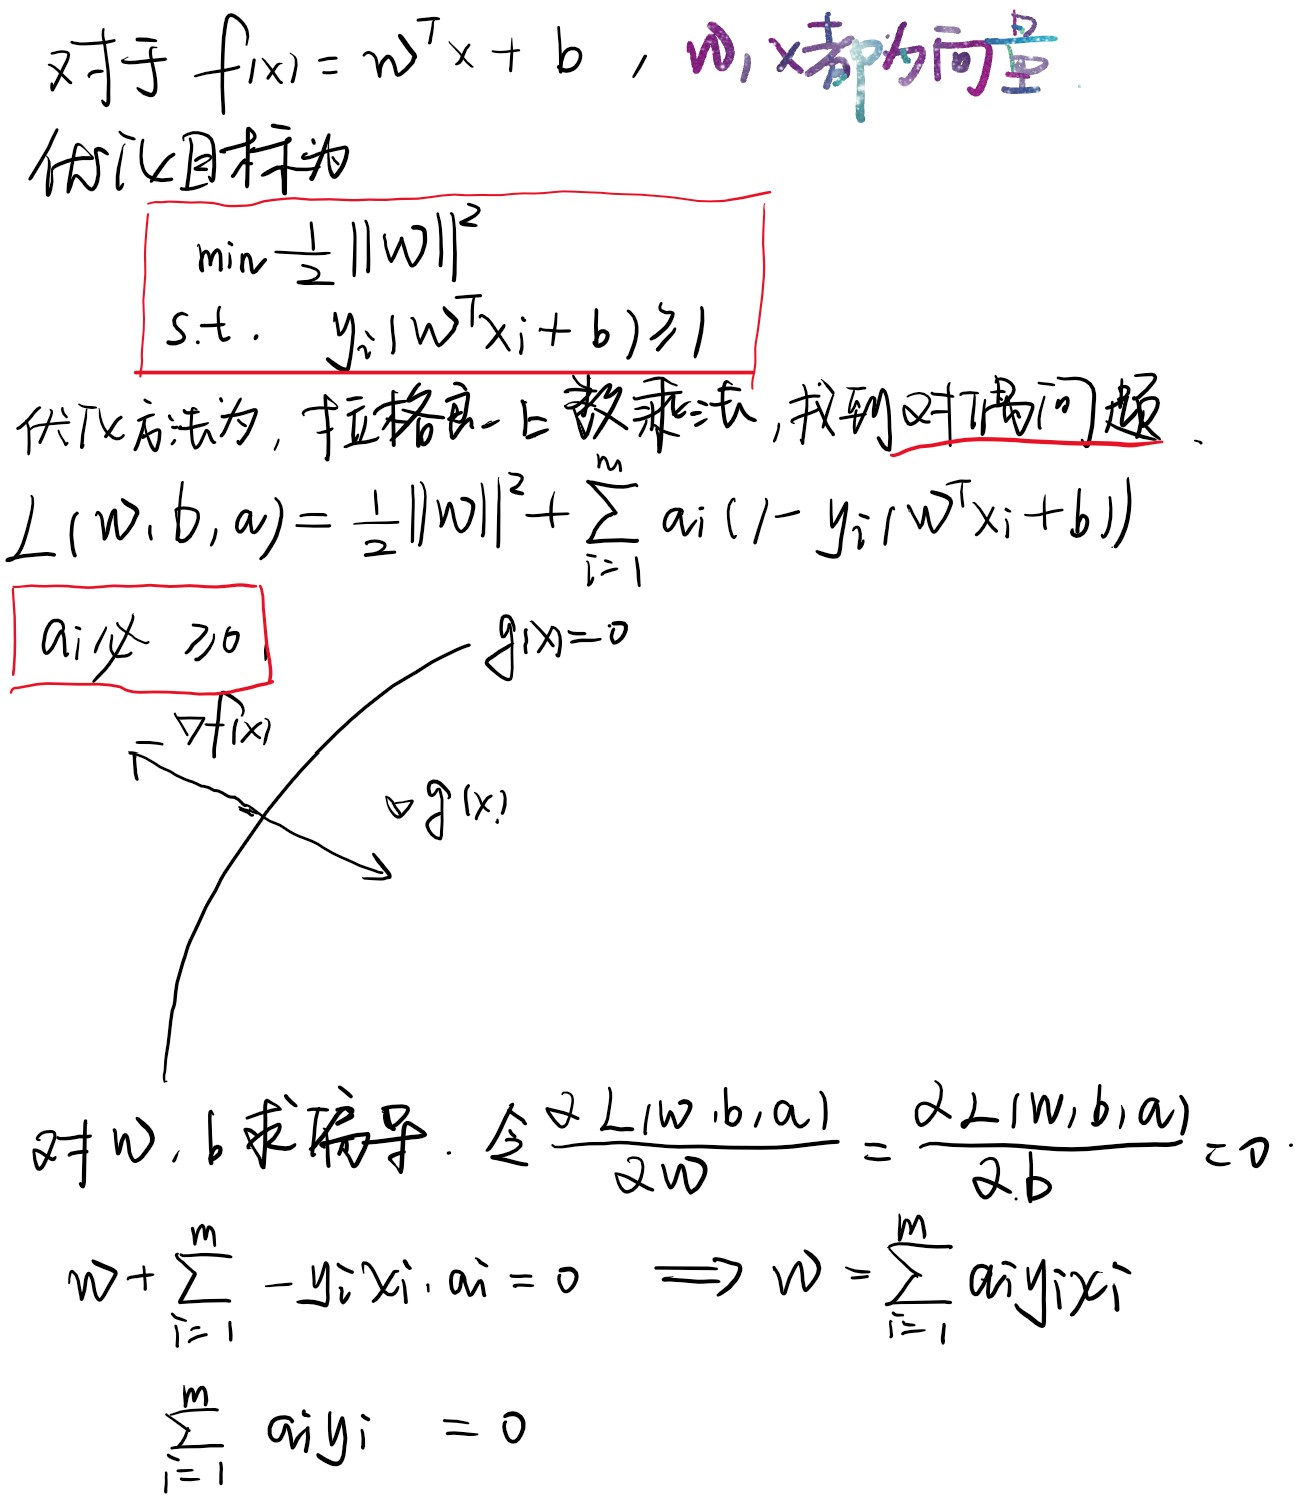 对于 f(x) = w^T x + b , w, x都为向量.
优化目标为
min 1/2 ||w||^2
s.t. y_i(w^T x_i + b) ⩾ 1
优化方法为, 拉格朗日数乘法, 找到对偶问题.
L(w, b, a) = 1/2 ||w||^2 + ∑_{i=1}^{m} a_i (1 - y_i(w^T x_i + b))
a_i ⩾ 0
g(x) = 0
∇f(x)
∇g(x)
对 w, b 求偏导. 令 ∂L(w, b, a)/∂w = ∂L(w, b, a)/∂b = 0.
w + ∑_{i=1}^{m} - y_i x_i · a_i = 0 ⟹ w = ∑_{i=1}^{m} a_i y_i x_i
∑_{i=1}^{m} a_i y_i = 0